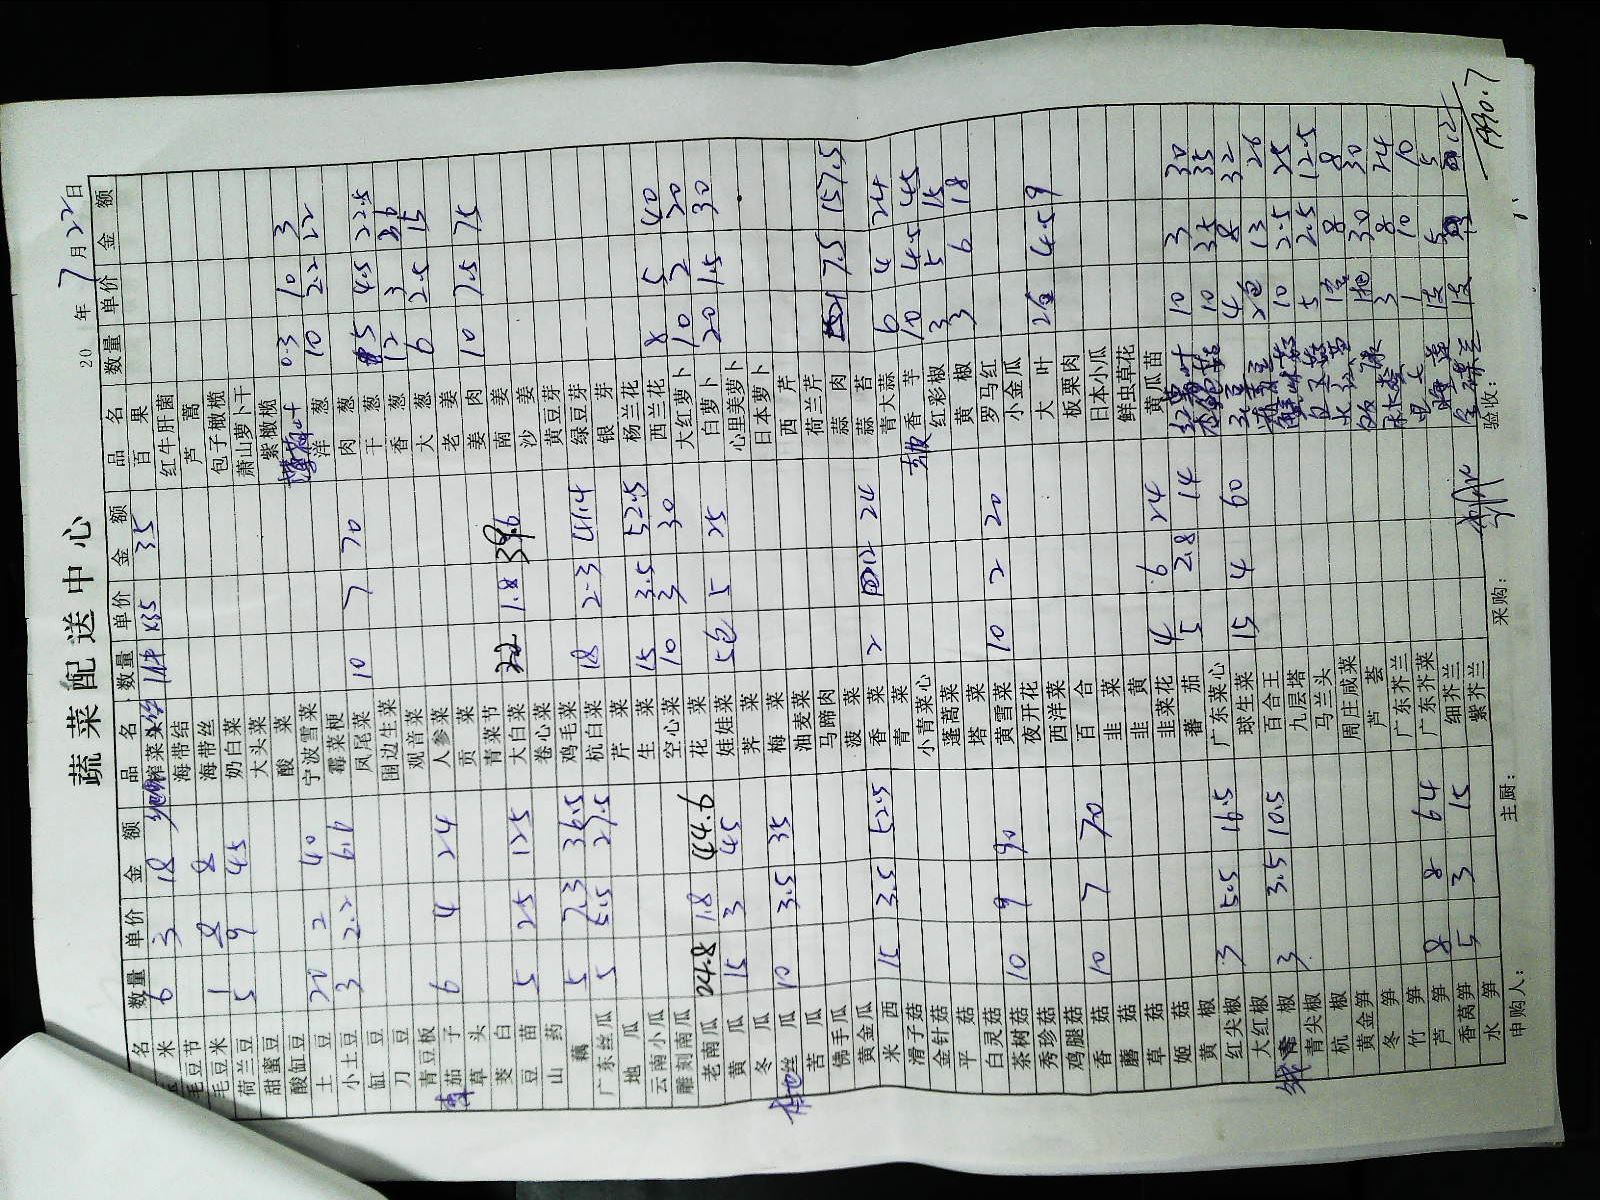 蔬菜配送中心
20 年 7 月 22 日
名 数量 单价 金 额 品 名 数量 单价 金 额 品 名 数量 单价 金 额
米 6 3 18
毛豆节
毛豆米 1 8 8
荷兰豆 5 9 45
甜蜜豆
酸豇豆
土豆 20 2 40
小土豆 3 2.2 6.6
豇豆
刀豆
青豆板
茄子 6 4 24
草头
茭白
豆苗 5 25 125
山药
藕 5 7.3 36.5
广东丝瓜 5 5.5 27.5
地瓜
云南小瓜
雕刻南瓜
老南瓜 24.8 1.8 44.6
黄瓜 15 3 45
冬瓜
本地丝瓜 10 3.5 35
苦瓜
佛手瓜
黄金瓜
米西 15 3.5 52.5
滑子菇
金针菇
平菇
白灵菇
茶树菇 10 9 90
秀珍菇
鸡腿菇
香菇 10 7 70
蘑菇
草菇
姬菇
黄椒
红尖椒 3 5.5 16.5
大红椒
青椒 3 3.5 10.5
青尖椒
杭椒
黄金笋
冬笋
竹笋
芦笋 8 8 64
香莴笋 5 3 15
水笋
榨菜 1件 35 35
海带结
海带丝
奶白菜
大头菜
酸菜
宁波雪菜
霉菜梗
凤尾菜 10 7 70
围边生菜
观音菜
人参菜
贡菜
青菜节
大白菜 22 1.8 39.6
卷心菜
鸡毛菜
杭白菜 18 2.3 41.4
芹菜
生菜 15 3.5 52.5
空心菜 10 3 30
花菜
娃娃菜 5包 5 25
荠菜
梅菜
油麦菜
马蹄肉
菠菜
香菜 2 12 24
青菜
小青菜心
蓬蒿菜
塔菜
黄雪菜 10 2 20
夜开花
西洋菜
百合
韭菜
韭黄
韭菜花 4 6 24
蕃茄 5 2.8 14
广东菜心
球生菜 15 4 60
百合王
九层塔
马兰头
周庄咸菜
芦荟
广东芥兰
广东芥菜
细芥兰
紫芥兰
百果
红牛肝菌
芦蒿
包子橄榄
萧山萝卜干
紫橄榄
薄荷叶 0.3 10 3
洋葱 10 2.2 22
肉葱
干葱 5 4.5 22.5
香葱 12 3 36
大葱 6 2.5 15
老姜
姜肉 10 7.5 75
南姜
沙姜
黄豆芽
绿豆芽
银芽
杨兰花
西兰花 8 5 40
大红萝卜 10 2 20
白萝卜 20 1.5 30
心里美萝卜
日本萝卜
西芹
荷兰芹
蒜肉 21 7.5 157.5
蒜苔
青大蒜 6 4 24
香芋 10 4.5 45
红彩椒 3 5 15
黄椒 3 6 18
罗马红
小金瓜
大叶 2包 4.5 9
板栗肉
日本小瓜
鲜虫草花
黄瓜苗
10 3 30
10 3.5 35
4 8 32
2包 13 26
10 2.5 25
5 2.5 12.5
8 8
30 30
3 8 24
1 10 10
5 5
12
申购人： 主厨： 采购： 验收：
1990.7